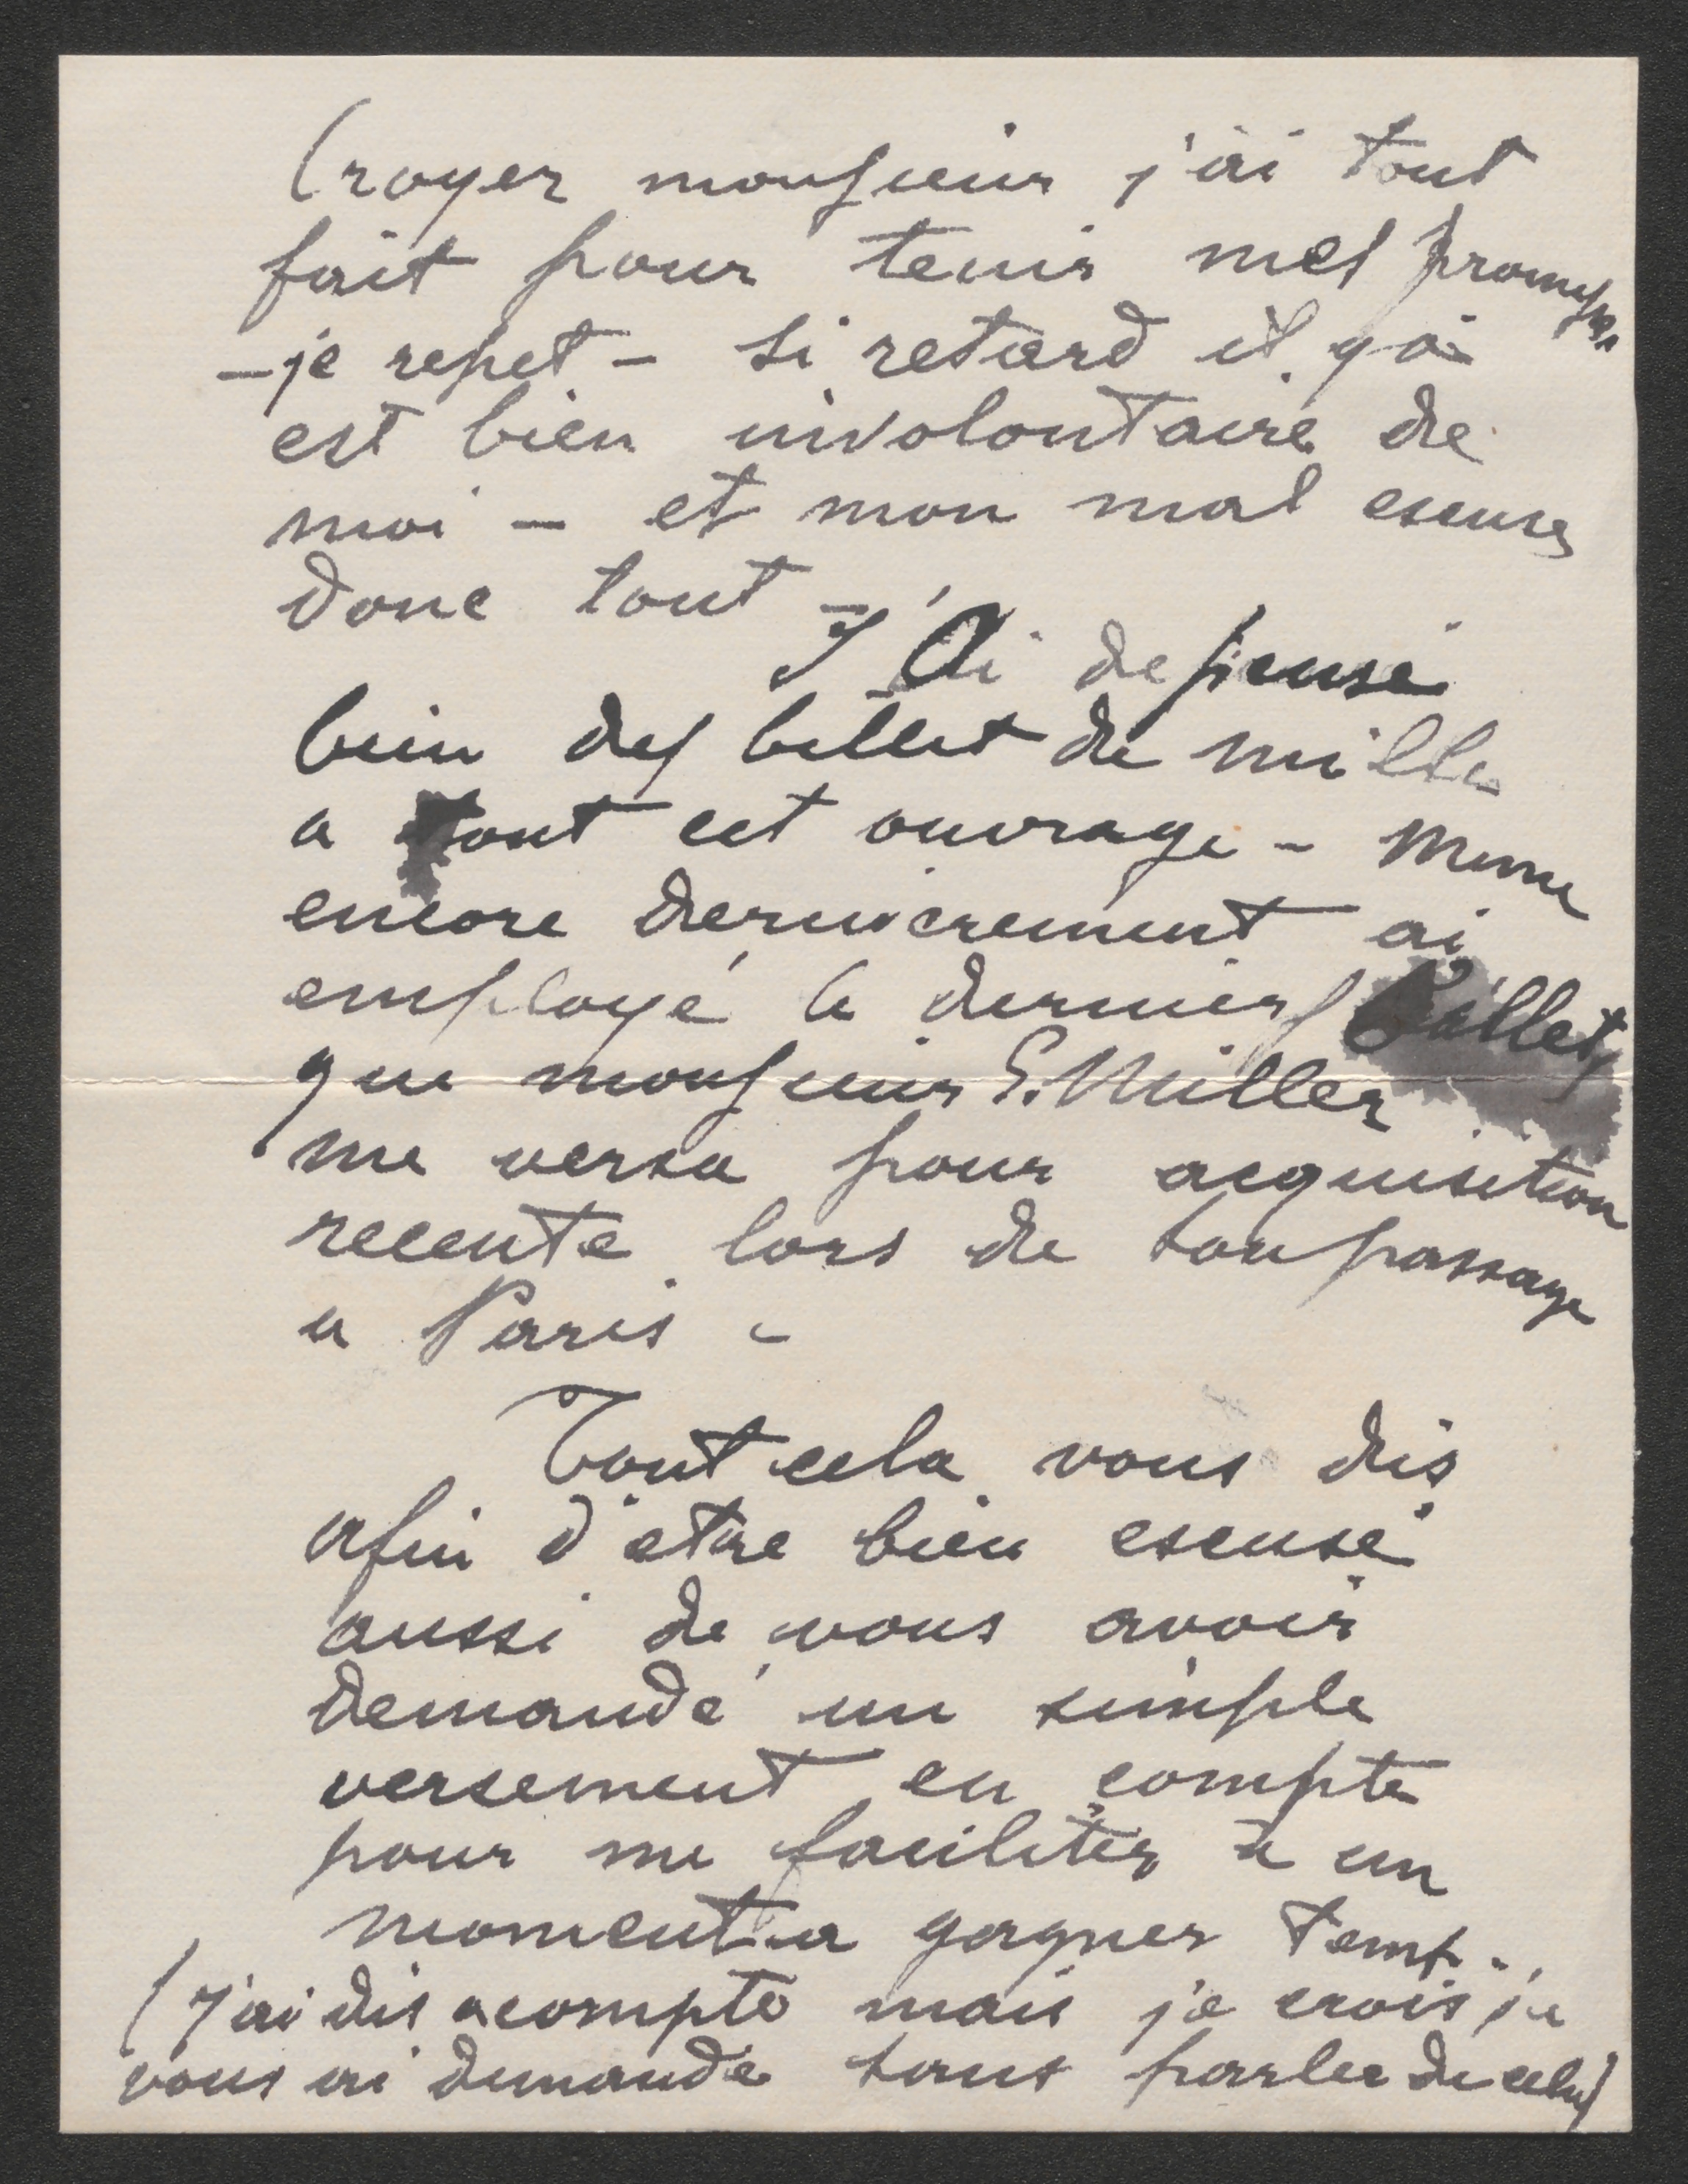 Croyer monsieur j'ai tout
fait pour tenir mes promesses
– je repet – si retard il y a
est bien involontaire de
moi – et mon mal escuses
donc tout –
J'Ai depensé
bien des billet de mille
a tout cet ouvrage – meme
encore dernierement ai
employé le derniers billets
que monsieur E. Miller
me versa pour acquisition
recente lors de son passage
a Paris –
Tout cela vous dis
afin d'etre bien escusé
aussi de vous avoir
demandé un simple
versement en compte
pour me faciliter à un
moment a gagner temps –
(J'ai dis acompte mais je crois je
vous ai demandé sans parler de cela)